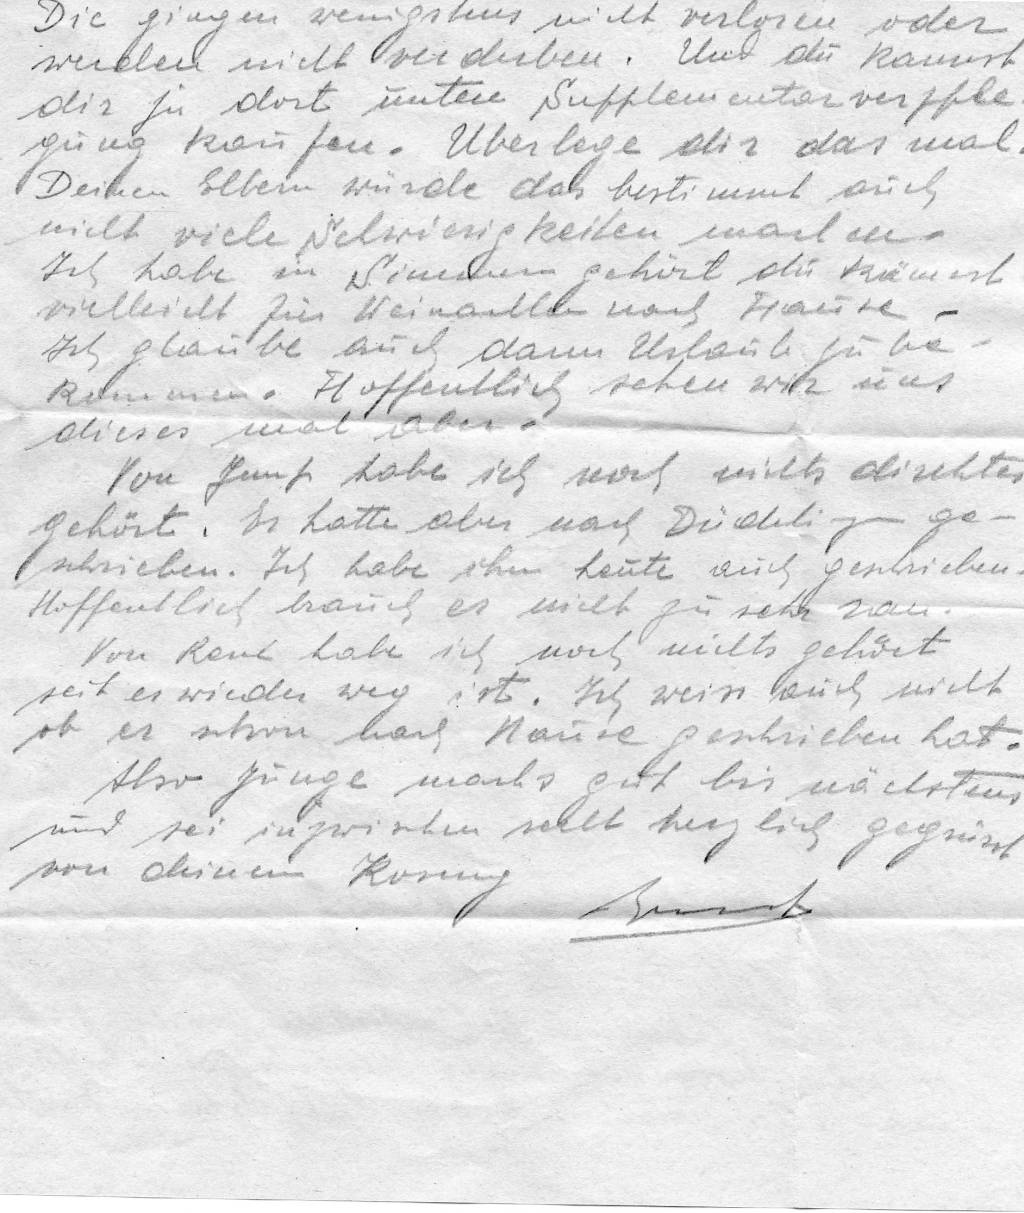 Die gingen wenigstens nicht verloren oder
werden nicht verderben. Und du kannst
dir ja dort unten Supplementarverpfle-
gung kaufen. Uberlege dir das mal.
Deinen Eltern würde das bestimmt auch
nicht viele Schwierigkeiten machen.
Ich habe in gehört du kämest
vielleicht für Weinachten nach Hause.
Ich glaube auch dann Urlaub zu be-
kommen. Hoffentlich sehen wir uns
dieses mal aber.
Von Jemp habe ich noch nichts direktes
gehört. Er hatte aber nach Düdelingen ge-
schrieben. Ich habe ihm heute auch geschrieben.
Hoffentlich brauch er nicht zu sehr ran.
Von René habe ich noch nichts gehört
seit er wieder weg ist. Ich weiss auch nicht
ob er schon nach Hause geschrieben hat.
Also Junge machs gut bis nächstens
und sei inzwischen recht herzlich gegrüsst
von deinem